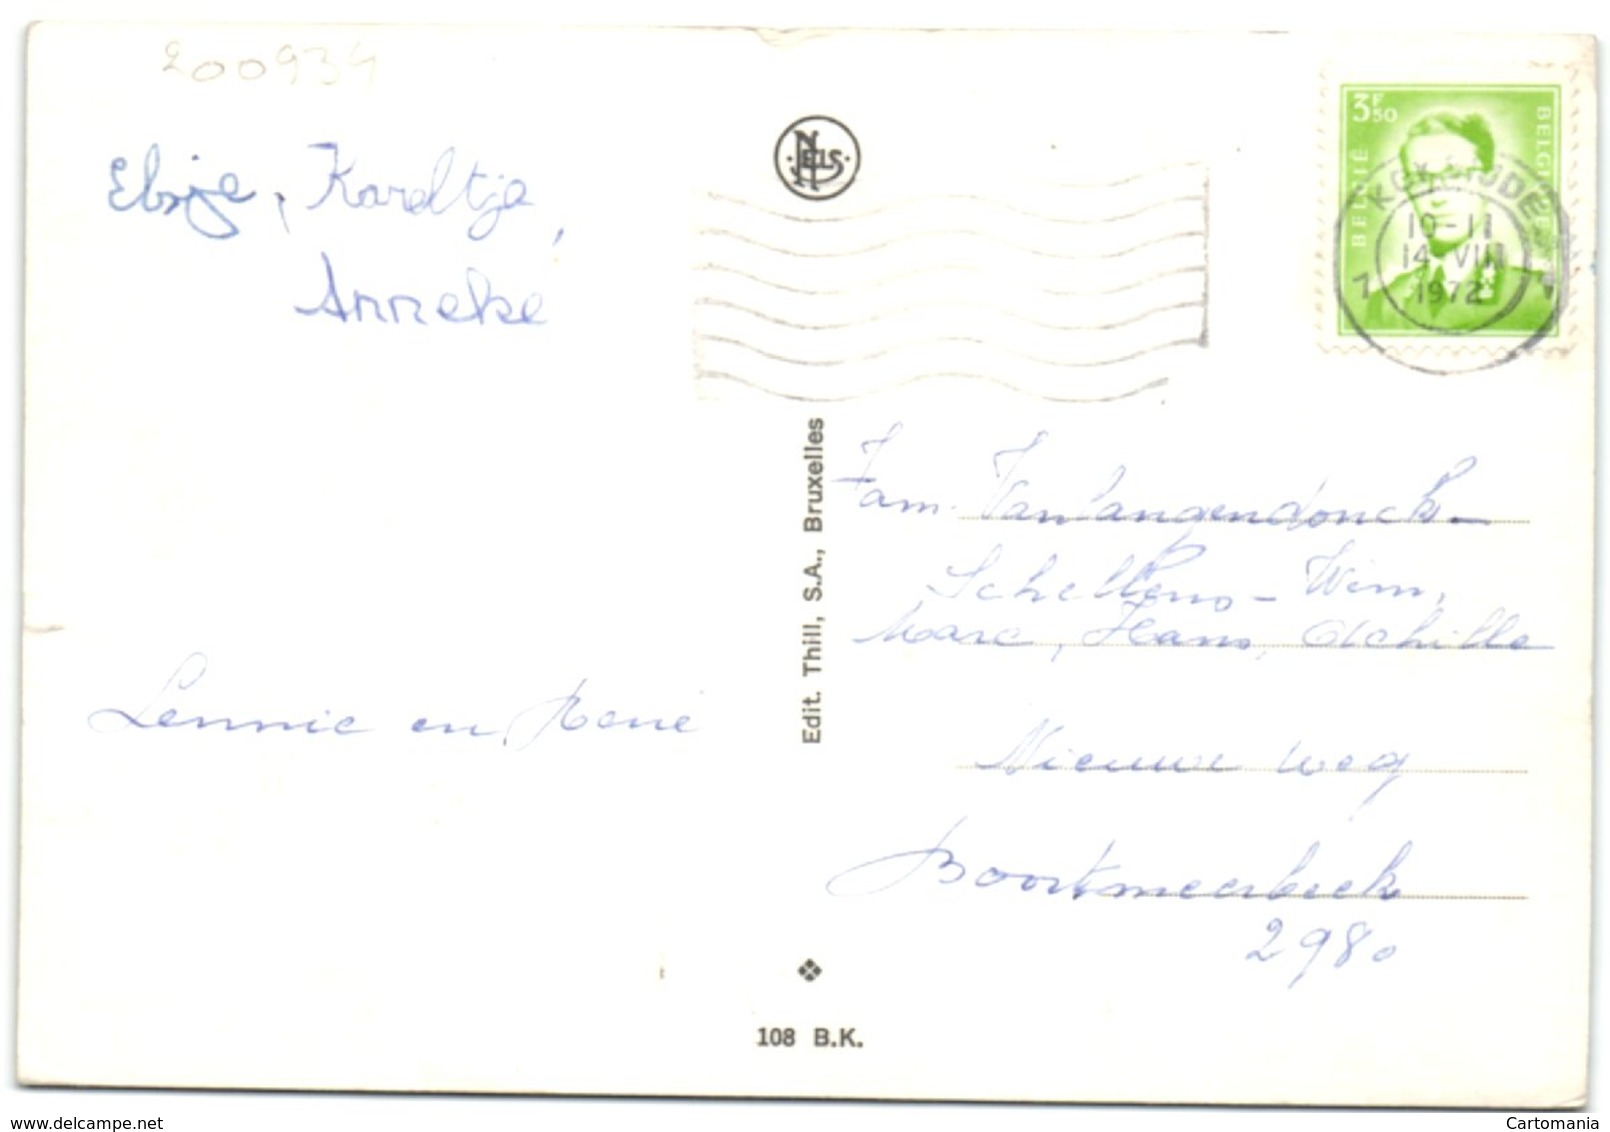 200934
Elsje, Kareltje,
Anneke
Lennie en René
NELS
Edit. Thill, S.A., Bruxelles
108 B.K.
3F50
BELGIË
BELGIQUE
KOKSIJDE
10-11
14 VIII
1972
Fam. Vanlangendonck-
Schellens - Wim,
Marc, Hans, Achille
Nieuwe weg
Boortmeerbeek
2980
www.delcampe.net
Cartomania